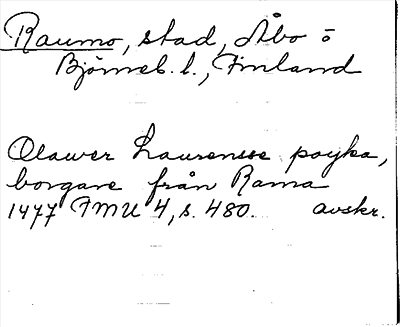 Raumo, stad, Åbo o
Björneb. l., Finland
Olawer Laurensse poyka,
borgare från Rama
1477 FMU 4, s. 480. avskr.